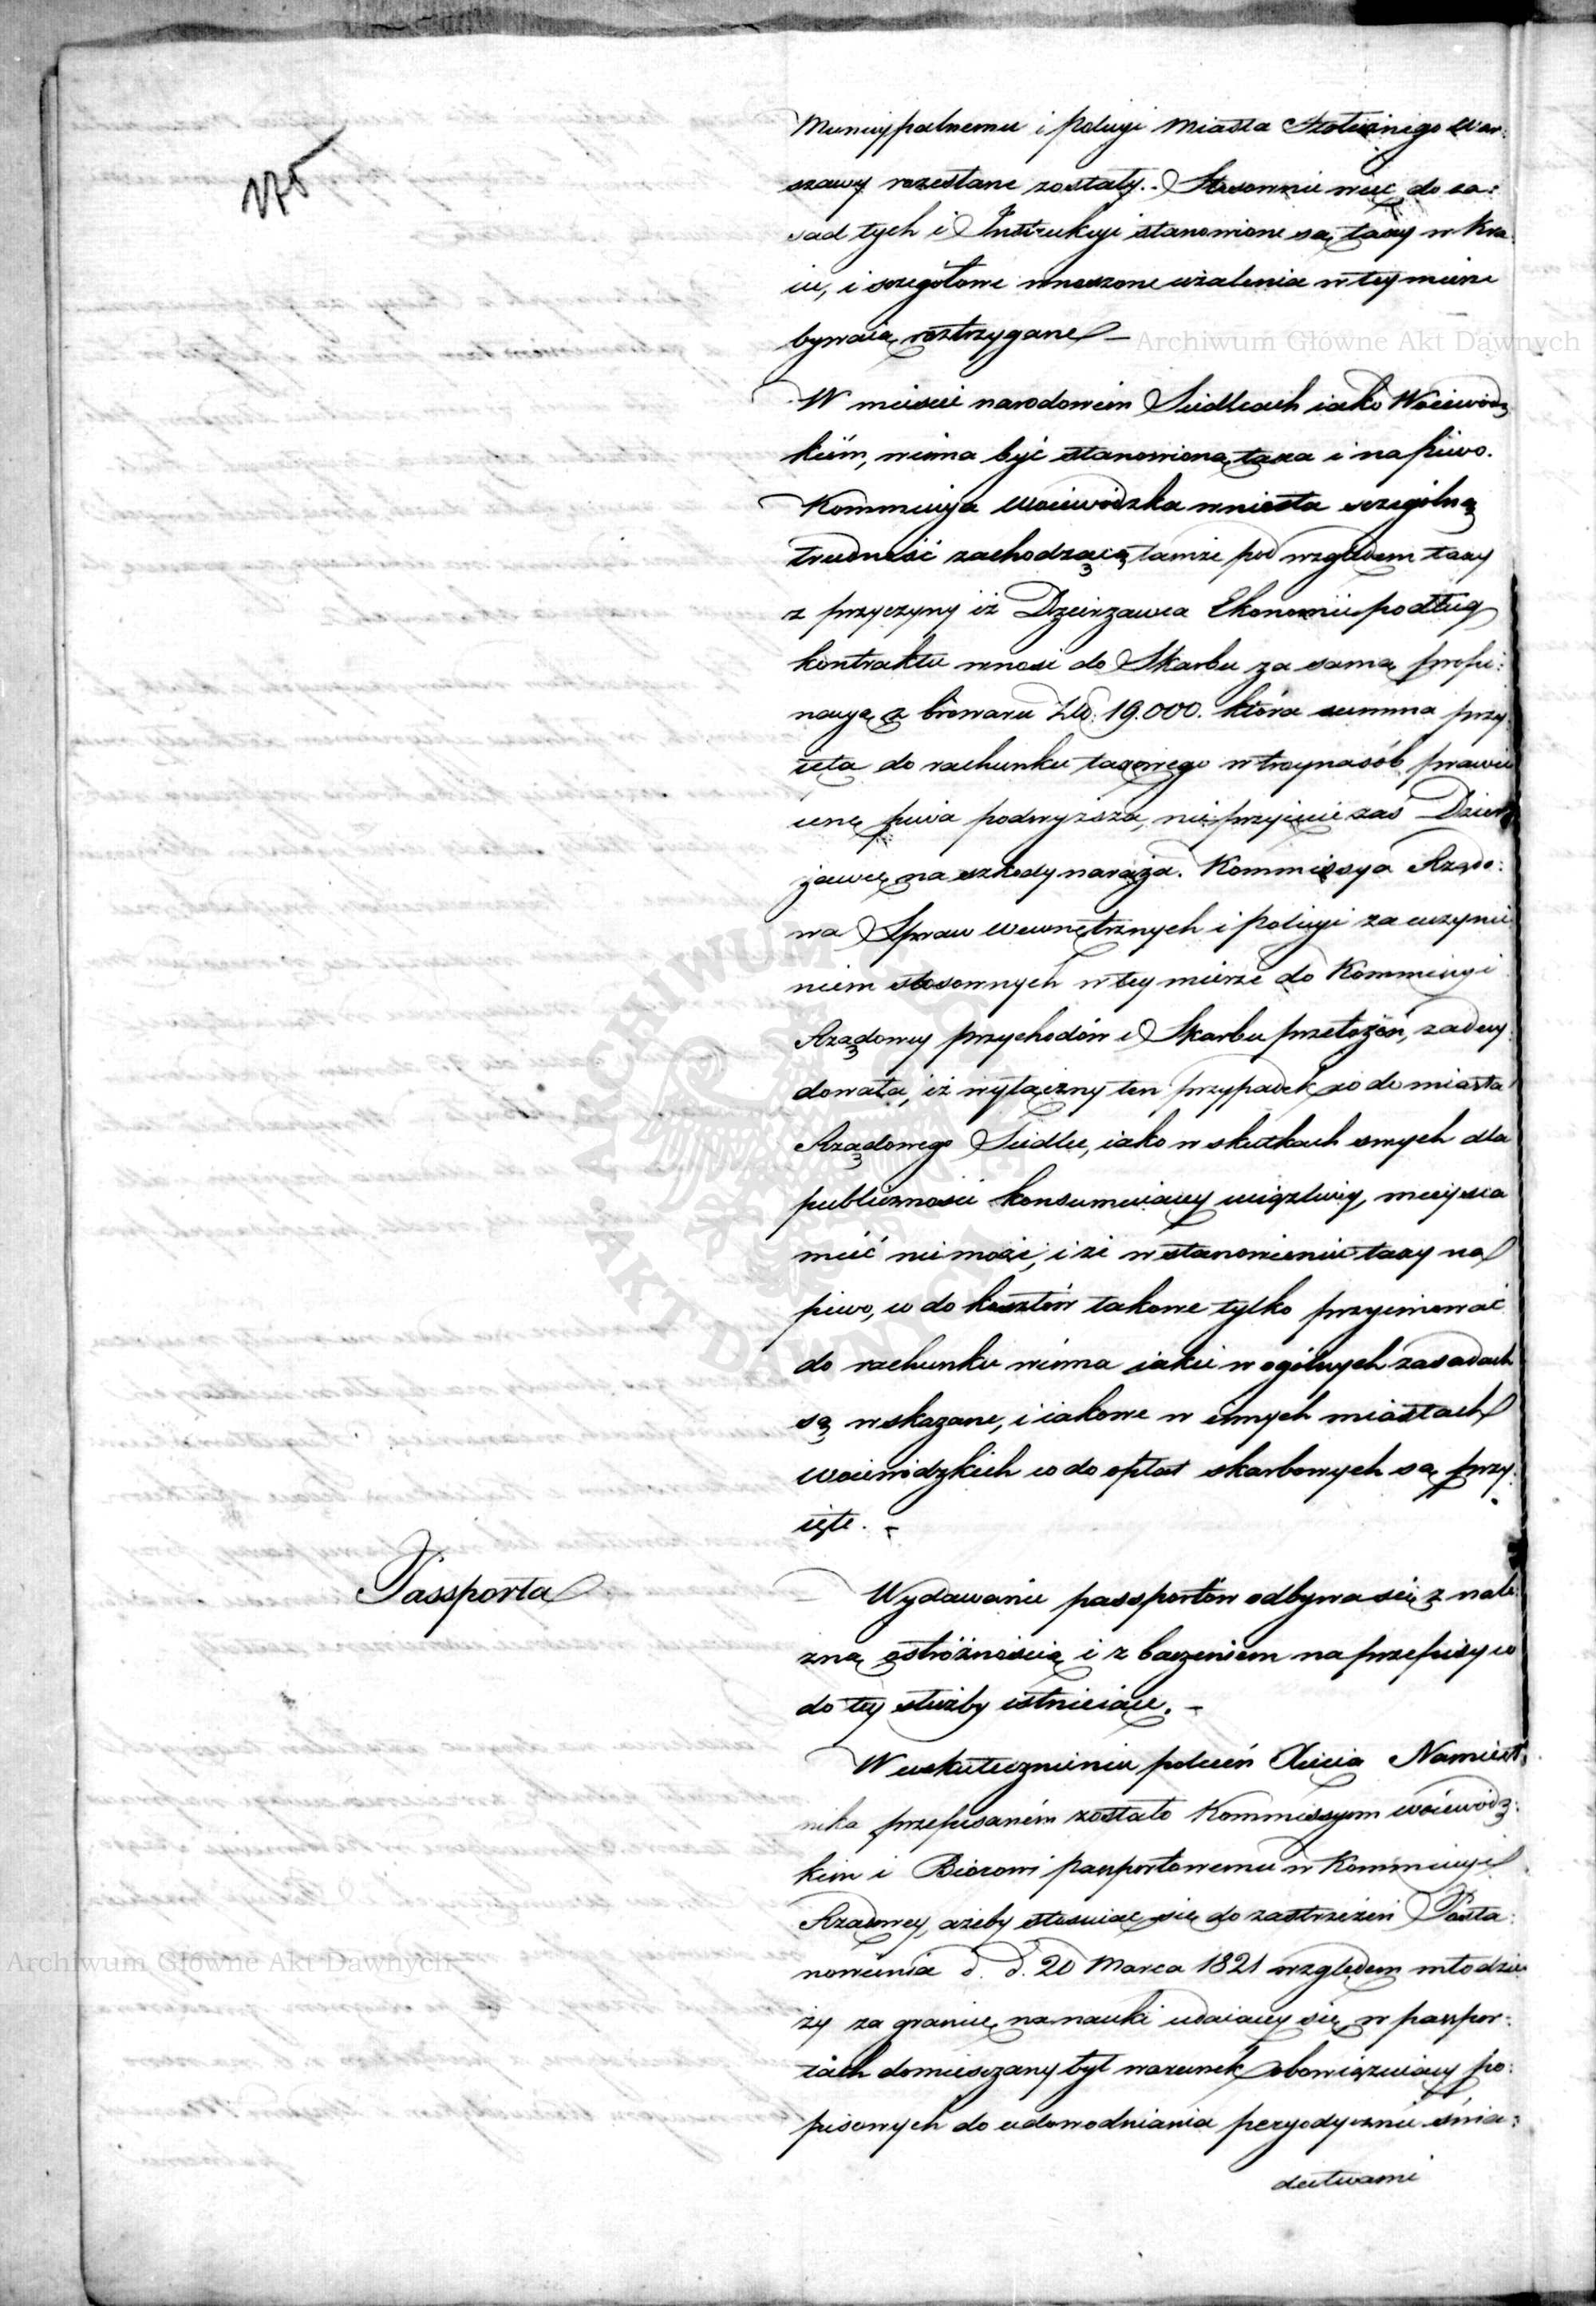 175
Municypalnemu i Policyi Miasta Stołecznego War:
szawy rozesłane zostały. Stosownie więc do za:
sad tych i Instrukcyi stanowione są taxy w Kra:
iu, i szczegółowe wnoszone użalenia w tey mierze
bywaią roztrzygane –
W mieście narodowem Siedlcach iako Woiewódz
kiém, winna być stanowioną taxa i na piwo.
Kommissya Woiewódzka wniosła szczególną
trudność zachodzącą tamże pod wzgłędem taxy
z przyczyny iż Dzierżawca Ekonomii podług
kontraktu wnosi do Skarbu za samą propi:
nacyę z browaru Złł. 19.000. która summa przy:
ięta do rachunku taxowego w tróynasób prawie
cenę piwa podwyższa, nieprzyięcie zaś Dzier
żawcę na szkody naraża. Kommissya Rządo:
wa Spraw Wewnętrznych i Policyi za uczynie
niem stosownych w tey mierze do Kommissyi
Rządowey Przychodów i Skarbu przełożeń, zadecy
dowała, iż wyłączny ten przypadek co do miasta
Rządowego Siedlec, iako w skutkach swych dla
publiczności konsumuiącey uciążliwy, mieysca
mieć nie może, i że w stanowieniu taxy na
piwo, co do kosztów takowe tylko przyimować
do rachunku winna iakie w ogólnych zasadach
są wskazane, i iakowe w innych miastach
Woiewódzkich co do opłat skarbowych są przy:
ięte. –
Passporta
Wydawanie passportów odbywa się z nale:
żną ostróżnością i z baczeniem na przepisy co
do tey służby istnieiące. –
W uskutecznieniu poleceń Xięcia Namiest:
nika przepisaném zostało Kommissyom Woiewódz:
kim i Biórowi Paszportowemu w Kommissyi
Rządowey, ażeby stosuiąc się do zastrzeżeń Posta:
nowienia d. d. 20 Marca 1821 względem młodzie
ży za granicę na nauki udaiącey się, w paszpor:
tach domieszczany był warunek obowiązuiący po:
pisowych do udowodniania peryodycznie świa:
dectwami
Archiwum Główne Akt Dawnych
Archiwum Główne Akt Dawnych